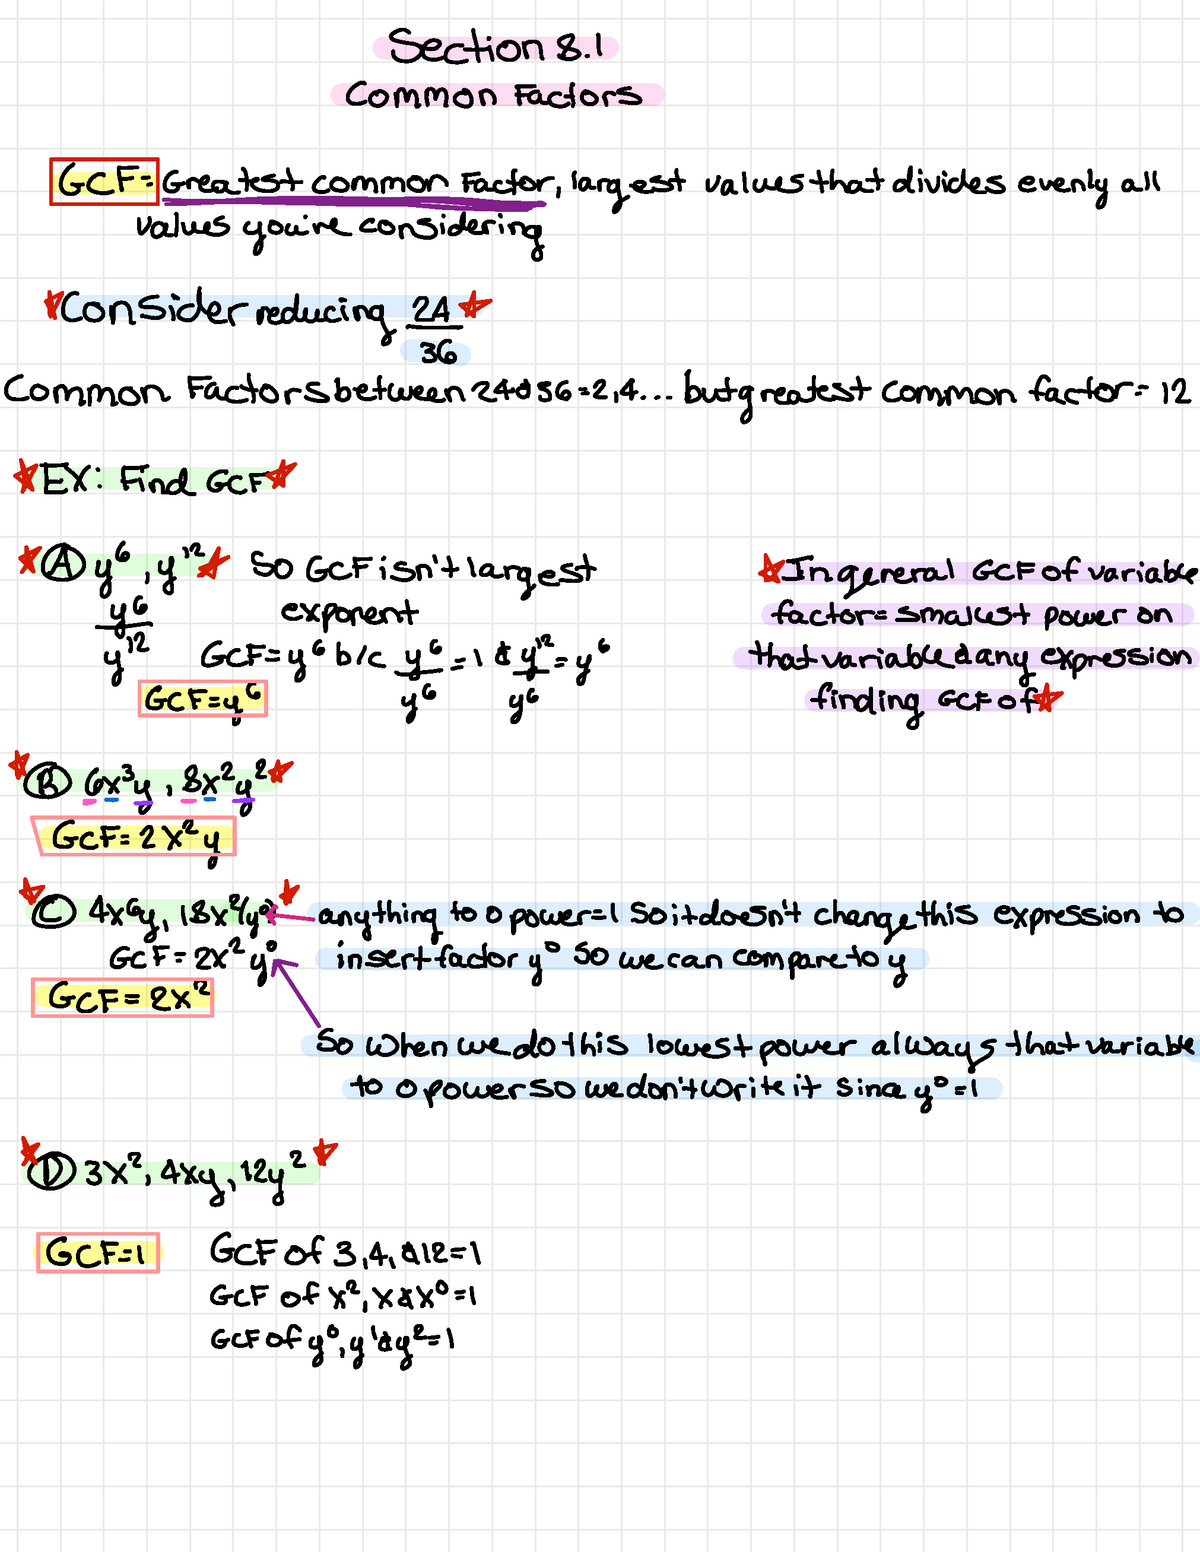 Section 8.1
Common Factors
GCF= Greatest common Factor, largest values that divides evenly all
values you're considering
Consider reducing 24/36
Common Factors between 24 & 36 = 2,4... but greatest common factor = 12
EX: Find GCF
A y⁶, y¹² So GCF isn't largest
exponent
y⁶/y¹² GCF = y⁶ b/c y⁶/y⁶ = 1 & y¹²/y⁶ = y⁶
GCF=y⁶
In general GCF of variable
factor = smallest power on
that variable & any expression
finding GCF of
B 6x³y, 8x²y²
GCF= 2x²y
C 4x⁶y, 18x²y⁰ anything to 0 power=1 So it doesn't change this expression to
insert factor y⁰ so we can compare to y
GCF = 2x²y⁰
GCF = 2x²
So when we do this lowest power always that variable
to 0 power so we don't write it since y⁰=1
D 3x², 4xy, 12y²
GCF=1
GCF of 3,4, & 12=1
GCF of x², x & x⁰ =1
GCF of y⁰, y¹ & y²=1